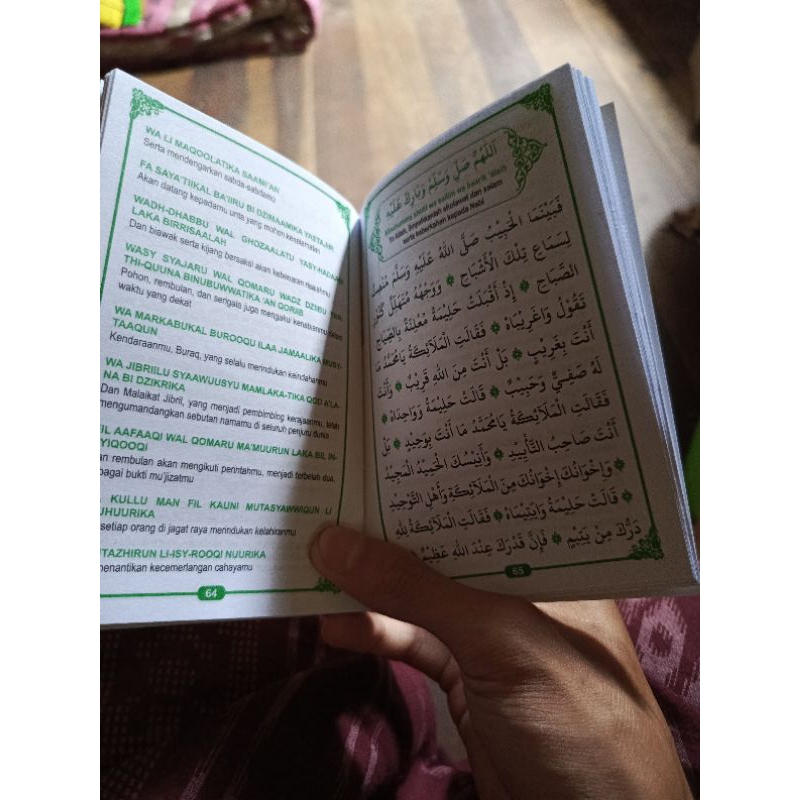 WA LI MAQOOLATIKA SAAMI'AN
Serta mendengarkan sabda-sabdamu
FA SAYA'TIIKAL BA'IIRU BI DZIMAAMIKA YASTAJIR
Akan datang kepadamu unta yang mohon keselamatan
WADH-DHABBU WAL GHOZAALATU YASY-HADAANI
LAKA BIRRISAALAH
Dan biawak serta kijang bersaksi akan kebenaran risalahmu
WASY SYAJARU WAL QOMARU WADZ DZI'BU
THI-QUUNA BINUBUWWATIKA 'AN QORIIB
Pohon, rembulan, dan serigala juga mengakui kenabianmu dalam
waktu yang dekat
WA MARKABUKAL BUROOQU ILAA JAMAALIKA MUSY-
TAAQUN
Kendaraanmu, Buraq, yang selalu merindukan keindahanmu
WA JIBRIILU SYAAWUUSYU MAMLAKA-TIKA QOD A'LA-
NA BI DZIKRIKA
Dan Malaikat Jibril, yang menjadi pembimbing kerajaanmu, telah
mengumandangkan sebutan namamu di seluruh penjuru dunia
IL AAFAAQI WAL QOMARU MA'MUURUN LAKA BIL IN-
YIQOOQI
an rembulan akan mengikuti perintahmu, menjadi terbelah dua,
bagai bukti mu'jizatmu
KULLU MAN FIL KAUNI MUTASYAWWIQUN LI
UHUURIKA
setiap orang di jagat raya merindukan kelahiranmu
TAZHIRUN LI-ISY-ROOQI NUURIKA
enantikan kecemerlangan cahayamu
64
اَللّٰهُمَّ صَلِّ وَسَلِّمْ وَبَارِكْ عَلَيْهِ
Allahumma sholli wa sallim wa baarik 'alaih
Ya Allah, limpahkanlah sholawat dan salam
serta keberkahan kepada Nabi
فَبَيْنَمَا الْحَبِيْبُ صَلَّى اللهُ عَلَيْهِ وَسَلَّمَ مُنْصِتٌ
لِسَمَاعِ تِلْكَ الْأَشْبَاحِ ۞ وَوَجْهُهُ مُتَهَلِّلٌ كَنُوْرِ
الصَّبَاحِ ۞ إِذْ أَقْبَلَتْ حَلِيْمَةُ مُعْلِنَةً بِالصِّيَاحِ
تَقُوْلُ وَاغَرِيْبَاهْ ۞ فَقَالَتِ الْمَلَآئِكَةُ يَامُحَمَّدُ مَا
أَنْتَ بِغَرِيْبٍ ۞ بَلْ أَنْتَ مِنَ اللهِ قَرِيْبٌ ۞ وَأَنْتَ
لَهُ صَفِيٌّ وَحَبِيْبٌ ۞ قَالَتْ حَلِيْمَةُ وَوَاحِدَاهْ ۞
فَقَالَتِ الْمَلَآئِكَةُ يَامُحَمَّدُ مَا أَنْتَ بِوَحِيْدٍ ۞ بَلْ
أَنْتَ صَاحِبُ التَّأْيِيْدِ ۞ وَأَنِيْسُكَ الْحَمِيْدُ الْمَجِيْدُ
۞ وَإِخْوَانُكَ إِخْوَانُكَ مِنَ الْمَلَآئِكَةِ وَأَهْلِ التَّوْحِيْدِ
۞ قَالَتْ حَلِيْمَةُ وَايَتِيْمَاهْ ۞ فَقَالَتِ الْمَلَآئِكَةُ لِلّٰهِ
دَرُّكَ مِنْ يَتِيْمٍ ۞ فَإِنَّ قَدْرَكَ عِنْدَ اللهِ عَظِيْمٌ ۞
65